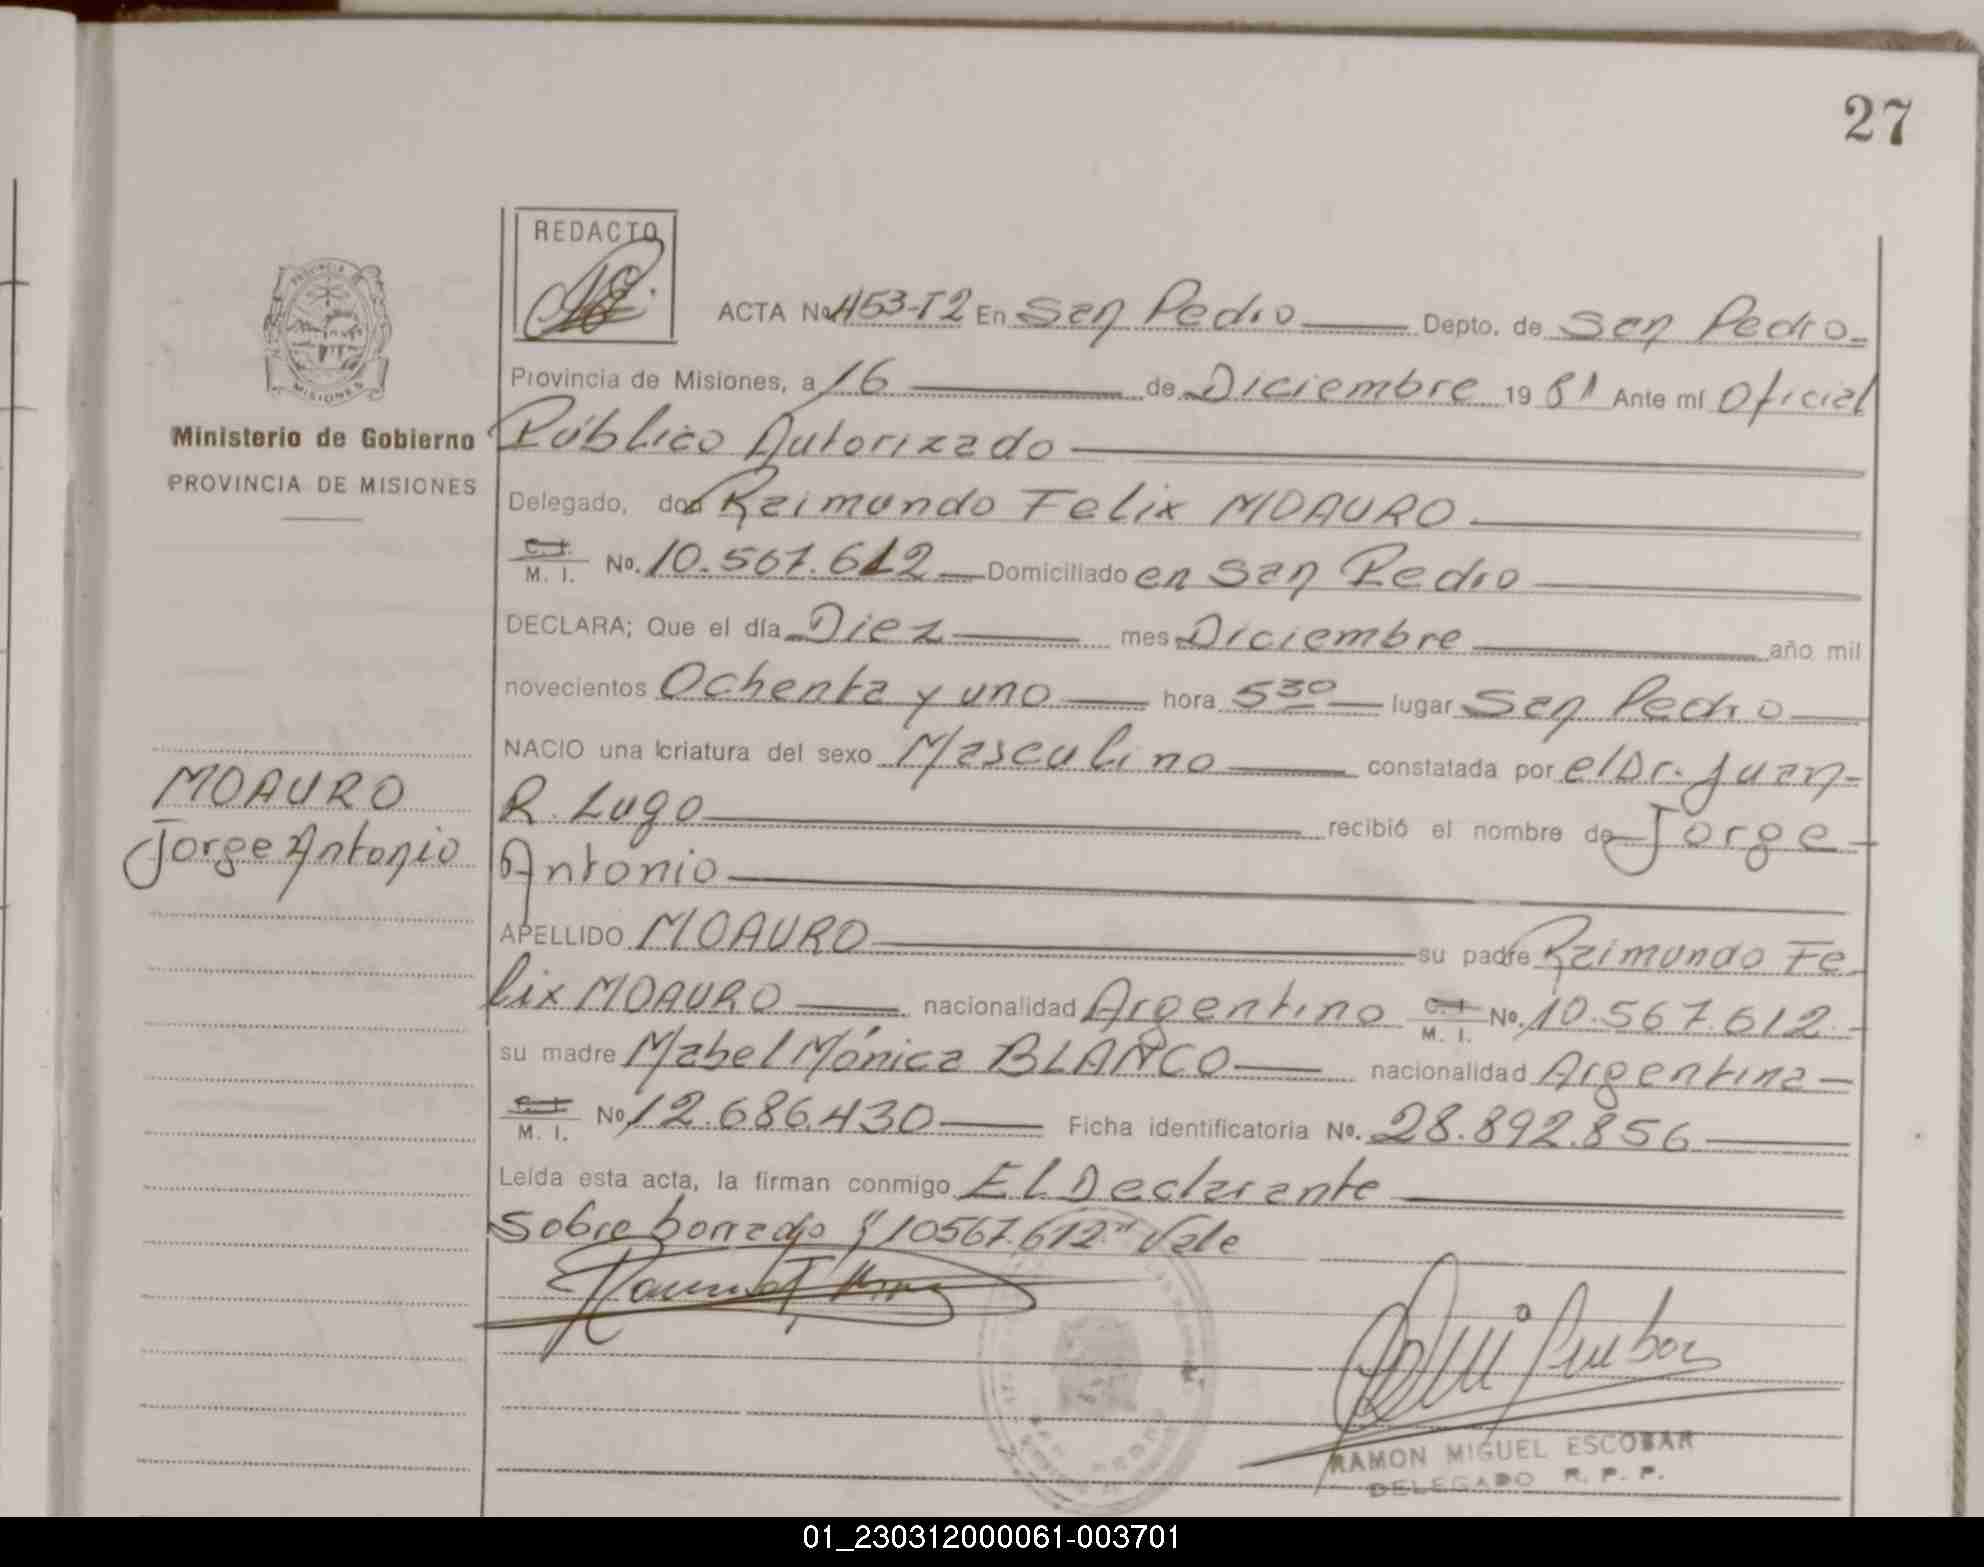 27
REDACTO
ACTA No 453-T2 En San Pedro Depto. de San Pedro
Provincia de Misiones, a 16 de Diciembre 1981 Ante mí Oficial
Público Autorizado
Delegado, don Raimundo Felix MOAURO
C. I.
M. I. No. 10.567.612 Domiciliado en San Pedro
DECLARA; Que el día Diez mes Diciembre año mil
novecientos Ochenta y uno hora 530 lugar San Pedro
NACIO una criatura del sexo Masculino constatada por el Dr. Juan
R. Lugo recibió el nombre de Jorge
Antonio
APELLIDO MOAURO su padre Raimundo Fe
lix MOAURO nacionalidad Argentino C. I. M. I. No. 10.567.612
su madre Mabel Mónica BLANCO nacionalidad Argentina
C. I.
M. I. No 12.686.430 Ficha identificatoria No. 28.892.856
Leída esta acta, la firman conmigo El Declarante
Sobre borrado "10567.612" Vale
RAMON MIGUEL ESCOBAR
DELEGADO R. P. P.
PROVINCIA DE
MISIONES
Ministerio de Gobierno
PROVINCIA DE MISIONES
MOAURO
Jorge Antonio
01_230312000061-003701